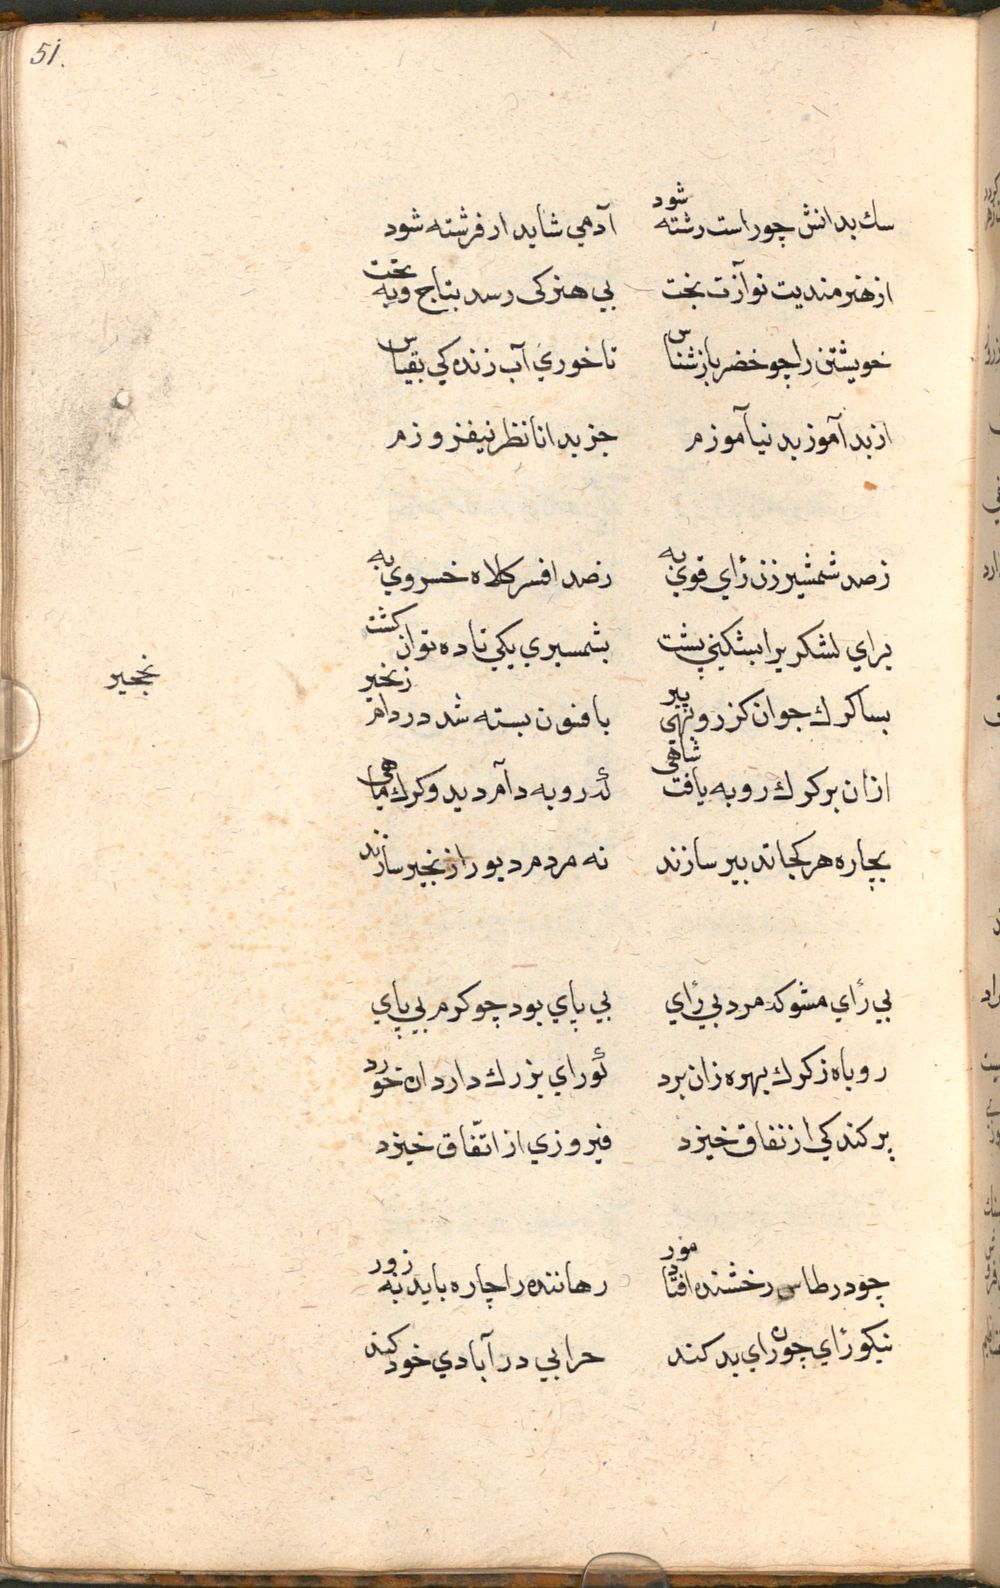 51.
سك بدانش چو راست رشته شود آدمي شايد ار فرشته شود
از هنرمنديت نوازت بخت بي هنر كى رسد بتاج وبه تخت
خويشتن را چو خضر باز شناس تا خوري آب زنده كي بقياس
از بد آموز بد نيآموزم جز بدانا نظر نيفزوزم
زصد شمشيرزن رأي قوي به زصد افسر كلاه خسروي به
براي لشكريرا بشكني پشت بشمسيري يكي تا ده توان كشت
نجحير
بسا كرك جوان كز روبهى پير بافنون بسته شد در دام زنخير
ازان بر كرك روبه يافت شاهى كه روبه دآم ديد وكرك ماهى
بچاره هر كجا تدبير سازند نه مردم ديو را از نخجير سازند
بي رأي مشو كه مرد بي رأي بي پاي بود چو كرم بي پاي
روباه زكرك بهره زان برد كو راي بزرك دارد ان خورد
پركندكي از نفاق خيزد فيروزي از اتّفاق خيزد
چو در طاس رخشنده افتاد مور رهاننده را چاره بايد نه زور
نيكو رأي چون راي بد كند حرابي در آبادي خود كند